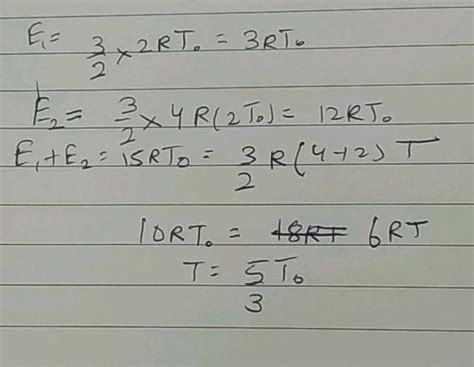 E₁ = 3/2 × 2RT₀ = 3RT₀
E₂ = 3/2 × 4R(2T₀) = 12RT₀
E₁ + E₂ = 15RT₀ = 3/2 R(4+2) T
10RT₀ = ~~18RT~~ 6RT
T = 5T₀/3